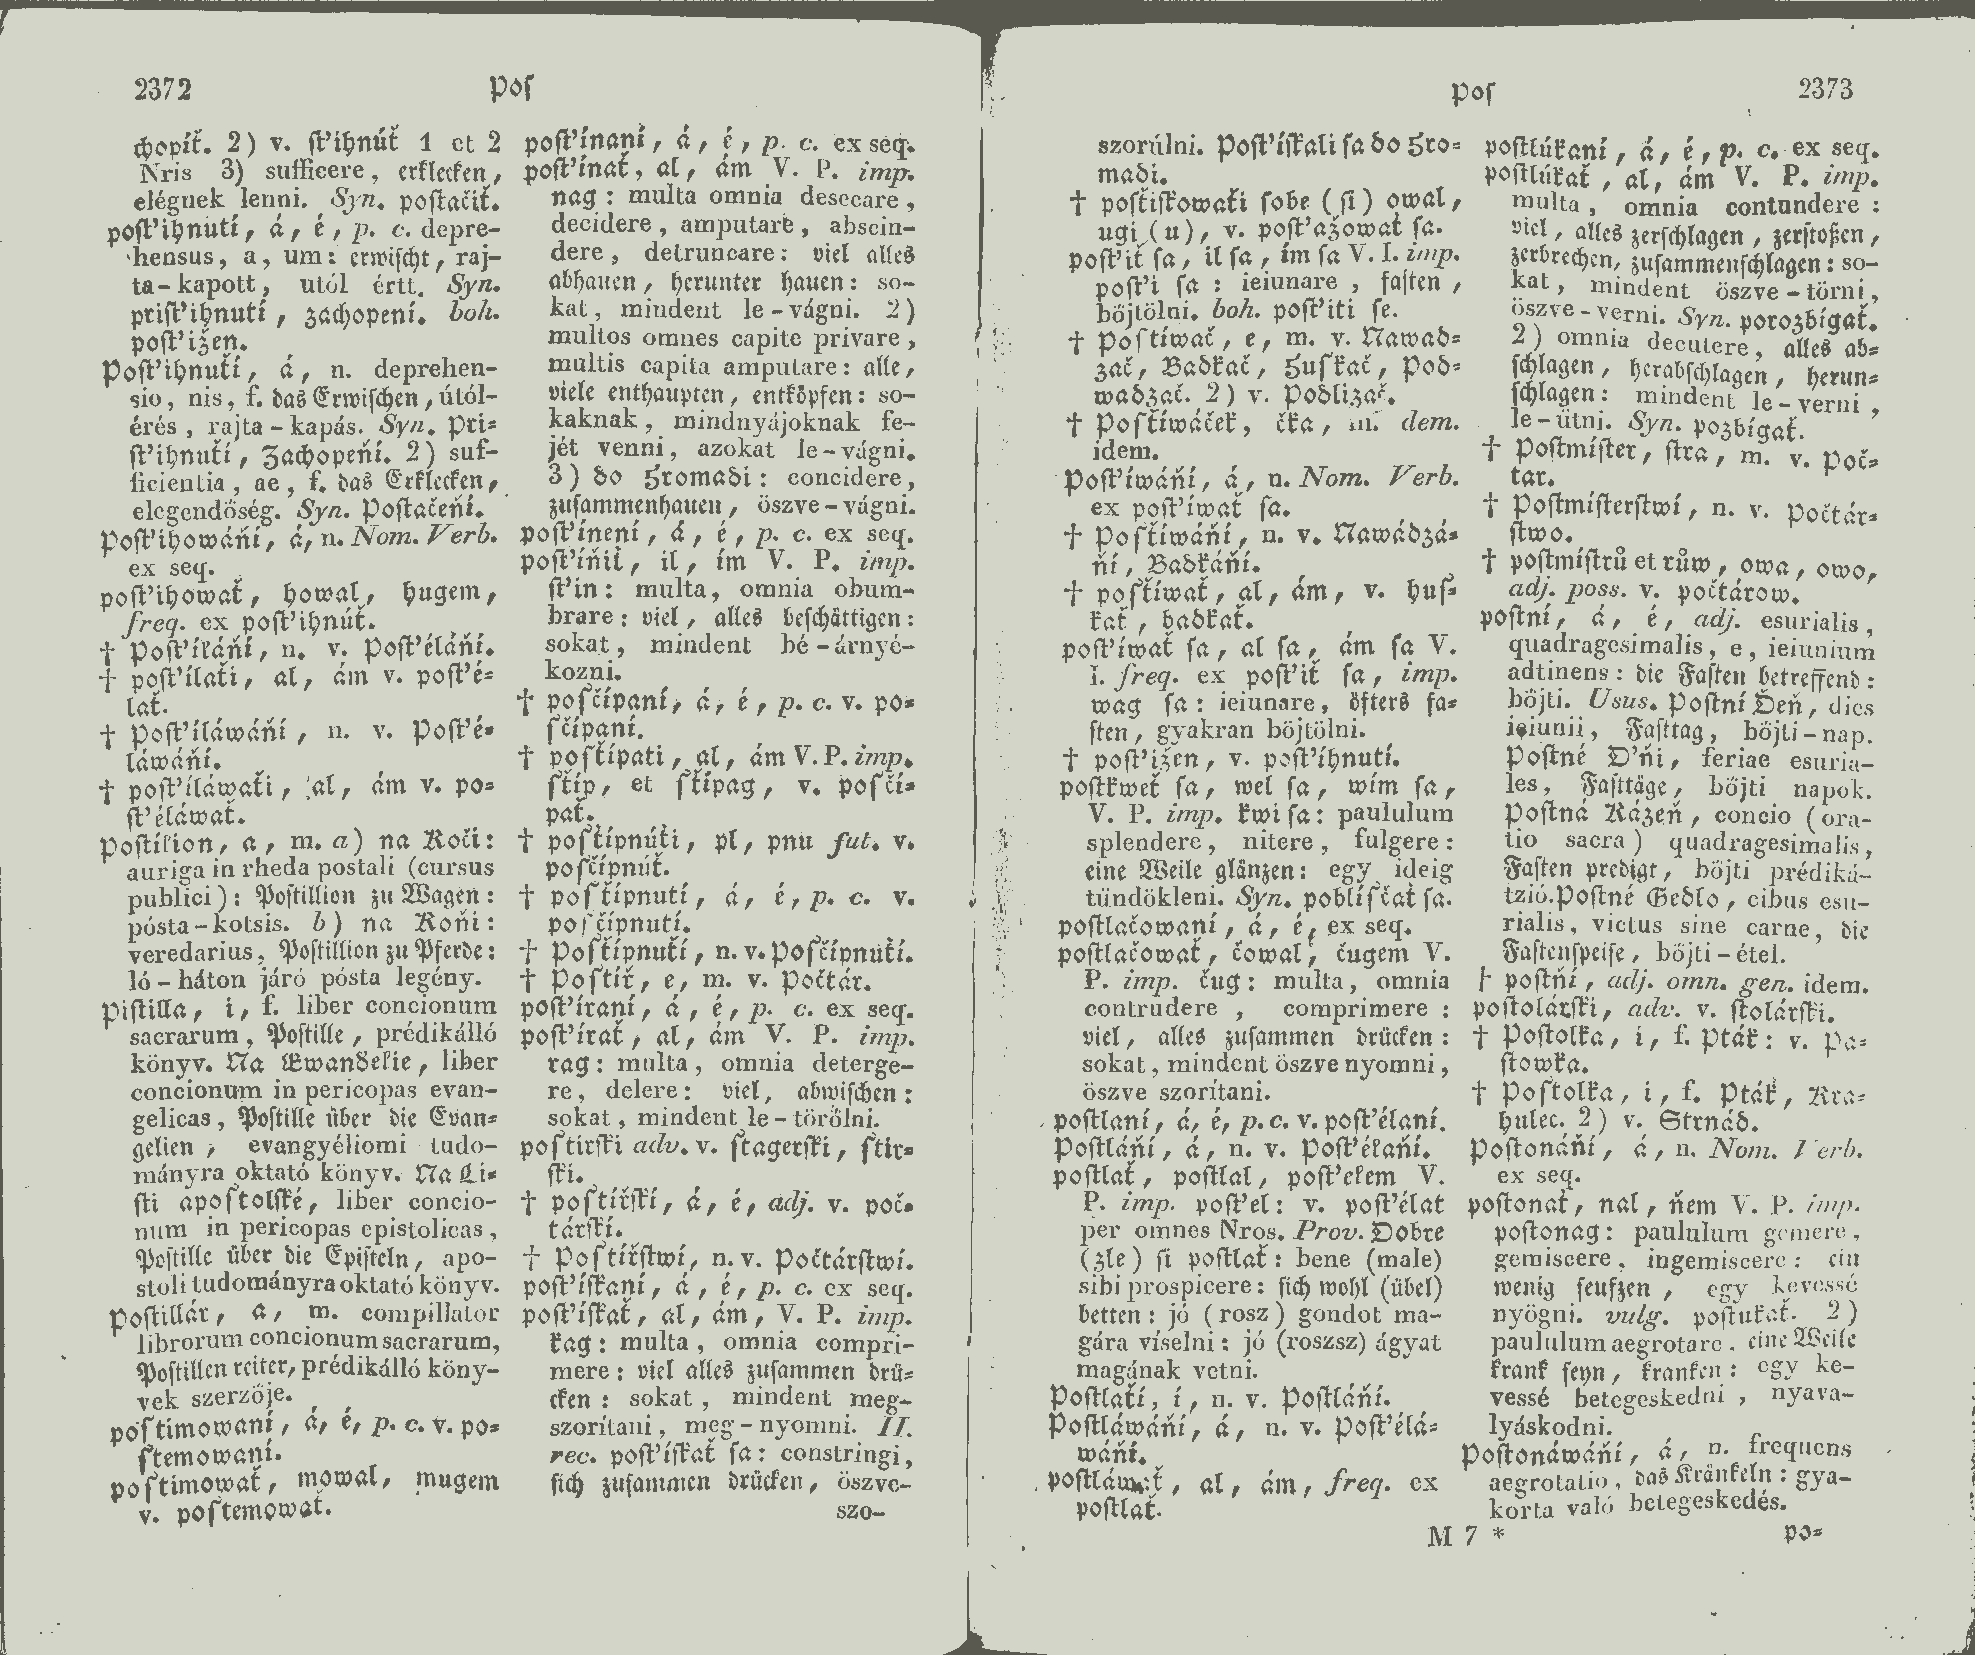 2372
Pos
chopiť. 2) v. sťihnúť 1 et 2
Nris 3) sufficere, erklecken,
elégnek lenni. Syn. postačiť.
posťihnutí, á, é, p. c. depre-
hensus, a, um: erwischt, raj-
ta-kapott, utól értt. Syn.
prisťihnutí, zachopení. boh.
posťižen.
Posťihnuťí, á, n. deprehen-
sio, nis, f. das Erwischen, útól-
érés, rajta-kapás. Syn. Pri-
sťihnuťí, Zachopeňí. 2) suf-
ficientia, ae, f. das Erklecken,
elegendőség. Syn. Postačeňí.
Posťihowáňí, á, n. Nom. Verb.
ex seq.
posťihowať, howal, hugem,
freq. ex posťihnúť.
† Posťíláňí, n. v. Posťéláňí.
† posťílaťi, al, ám v. posťé-
lať.
† Posťíláwáňí, n. v. Posťé-
láwáňí.
† posťíláwaťi, al, ám v. po-
sťéláwať.
Postilion, a, m. a) na Koči:
auriga in rheda postali (cursus
publici): Postillion zu Wagen:
pósta-kotsis. b) na Koňi:
veredarius, Postillion zu Pferde:
ló-háton járó pósta legény.
Pistilla, i, f. liber concionum
sacrarum, Postille, prédikálló
könyv. Na Ewangelie, liber
concionum in pericopas evan-
gelicas, Postille über die Evan-
gelien, evangyéliomi tudo-
mányra oktató könyv. Na Li-
sti apostolské, liber concio-
num in pericopas epistolicas,
Postille über die Episteln, apo-
stoli tudományra oktató könyv.
Postillár, a, m. compillator
librorum concionum sacrarum,
Postillen reiter, prédikálló köny-
vek szerzője.
postimowaní, á, é, p. c. v. po-
stemowaní.
postimowať, mowal, mugem
v. postemowať.
posťínaní, á, é, p. c. ex seq.
posťínať, al, ám V. P. imp.
nag: multa omnia desecare,
decidere, amputare, abscin-
dere, detruncare: viel alles
abhauen, herunter hauen: so-
kat, mindent le-vágni. 2)
multos omnes capite privare,
multis capita amputare: alle,
viele enthaupten, entköpfen: so-
kaknak, mindnyájoknak fe-
jét venni, azokat le-vágni.
3) do Hromadi: concidere,
zusammenhauen, öszve-vágni.
posťínení, á, é, p. c. ex seq.
posťíňiť, il, ím V. P. imp.
sťin: multa, omnia obum-
brare: viel, alles beschättigen:
sokat, mindent bé-árnyé-
kozni.
† posčípaní, á, é, p. c. v. po-
sčípaní.
† posťípati, al, ám V. P. imp.
sťíp, et sťípag, v. posčí-
pať.
† posťípnúťi, pl, pnu fut. v.
posčípnúť.
† posťípnutí, á, é, p. c. v.
posčípnutí.
† Posťípnuťí, n. v. Posčípnuťí.
† Postíř, e, m. v. Počtár.
posťíraní, á, é, p. c. ex seq.
posťírať, al, ám V. P. imp.
rag: multa, omnia deterge-
re, delere: viel, abwischen:
sokat, mindent le-törölni.
postirski adv. v. stagerski, stir-
ski.
† postířskí, á, é, adj. v. poč-
társkí.
† Postířstwí, n. v. Počtárstwí.
posťískaní, á, é, p. c. ex seq.
posťískať, al, ám, V. P. imp.
kag: multa, omnia compri-
mere: viel alles zusammen drü-
cken: sokat, mindent meg-
szorítani, meg-nyomni. II.
rec. posťískať sa: constringi,
sich zusammen drücken, öszve-
szo-
Pos
2373
szorúlni. Posťískali sa do Hro-
madi.
† posťiskowaťi sobe (si) owal,
ugi (u), v. posťažowať sa.
posťiť sa, il sa, ím sa V. I. imp.
posťi sa: ieiunare, fasten,
böjtölni. boh. posťiti se.
† Postíwač, e, m. v. Nawad-
zač, Badkač, Huskač, Pod-
wadzač. 2) v. Podlizač.
† Posťíwáček, čka, m. dem.
idem.
Posťíwáňí, á, n. Nom. Verb.
ex posťíwať sa.
† Posťíwáňí, n. v. Nawádzá-
ňí, Badkáňí.
† posťíwať, al, ám, v. hus-
kať, badkať.
posťíwať sa, al sa, ám sa V.
I. freq. ex posťiť sa, imp.
wag sa: ieiunare, öfters fa-
sten, gyakran böjtölni.
† posťižen, v. posťihnutí.
postkweť sa, wel sa, wím sa,
V. P. imp. kwi sa: paululum
splendere, nitere, fulgere:
eine Weile glänzen: egy ideig
tündökleni. Syn. poblisčať sa.
postlačowaní, á, é, ex seq.
postlačowať, čowal, čugem V.
P. imp. čug: multa, omnia
contrudere, comprimere:
viel, alles zusammen drücken:
sokat, mindent öszve nyomni,
öszve szorítani.
postlaní, á, é, p. c. v. posťélaní.
Postláňí, á, n. v. Posťélaňí.
postlať, postlal, posťelem V.
P. imp. posťel: v. posťélať
per omnes Nros. Prov. Dobre
(zle) si postlať: bene (male)
sibi prospicere: sich wohl (übel)
betten: jó (rosz) gondot ma-
gára víselni: jó (roszsz) ágyat
magának vetni.
Postlaťí, í, n. v. Postláňí.
Postláwáňí, á, n. v. Posťélá-
wáňí.
postláwať, al, ám, freq. ex
postlať.
postlúkaní, á, é, p. c. ex seq.
postlúkať, al, ám V. P. imp.
multa, omnia contundere:
viel, alles zerschlagen, zerstoßen,
zerbrechen, zusammenschlagen: so-
kat, mindent öszve-törni,
öszve-verni. Syn. porozbígať.
2) omnia decutere, alles ab-
schlagen, herabschlagen, herun-
schlagen: mindent le-verni,
le-ütni. Syn. pozbígať.
† Postmíster, stra, m. v. Poč-
tar.
† Postmísterstwí, n. v. Počtár-
stwo.
† postmístrů et růw, owa, owo,
adj. poss. v. počtárow.
postní, á, é, adj. esurialis,
quadragesimalis, e, ieiunium
adtinens: die Fasten betreffend:
böjti. Usus. Postní Deň, dies
ieiunii, Fasttag, böjti-nap.
Postné D'ňi, feriae esuria-
les, Fasttäge, böjti napok.
Postná Kázeň, concio (ora-
tio sacra) quadragesimalis,
Fasten predigt, böjti prédiká-
tzió. Postné Gedlo, cibus esu-
rialis, victus sine carne, die
Fastenspeise, böjti-étel.
† postňí, adj. omn. gen. idem.
postolárski, adv. v. stolárski.
† Postolka, i, f. Pták: v. Pa-
stowka.
† Postolka, i, f. Pták, Kra-
hulec. 2) v. Strnád.
Postonáňí, á, n. Nom. Verb.
ex seq.
postonať, nal, ňem V. P. imp.
postonag: paululum gemere,
gemiscere, ingemiscere: ein
wenig seufzen, egy kevessé
nyögni. vulg. postukať. 2)
paululum aegrotare, eine Weile
krank seyn, kranken: egy ke-
vessé betegeskedni, nyava-
lyáskodni.
Postonáwáňí, á, n. frequens
aegrotatio, das Kränkeln: gya-
korta való betegeskedés.
M 7 *
po-